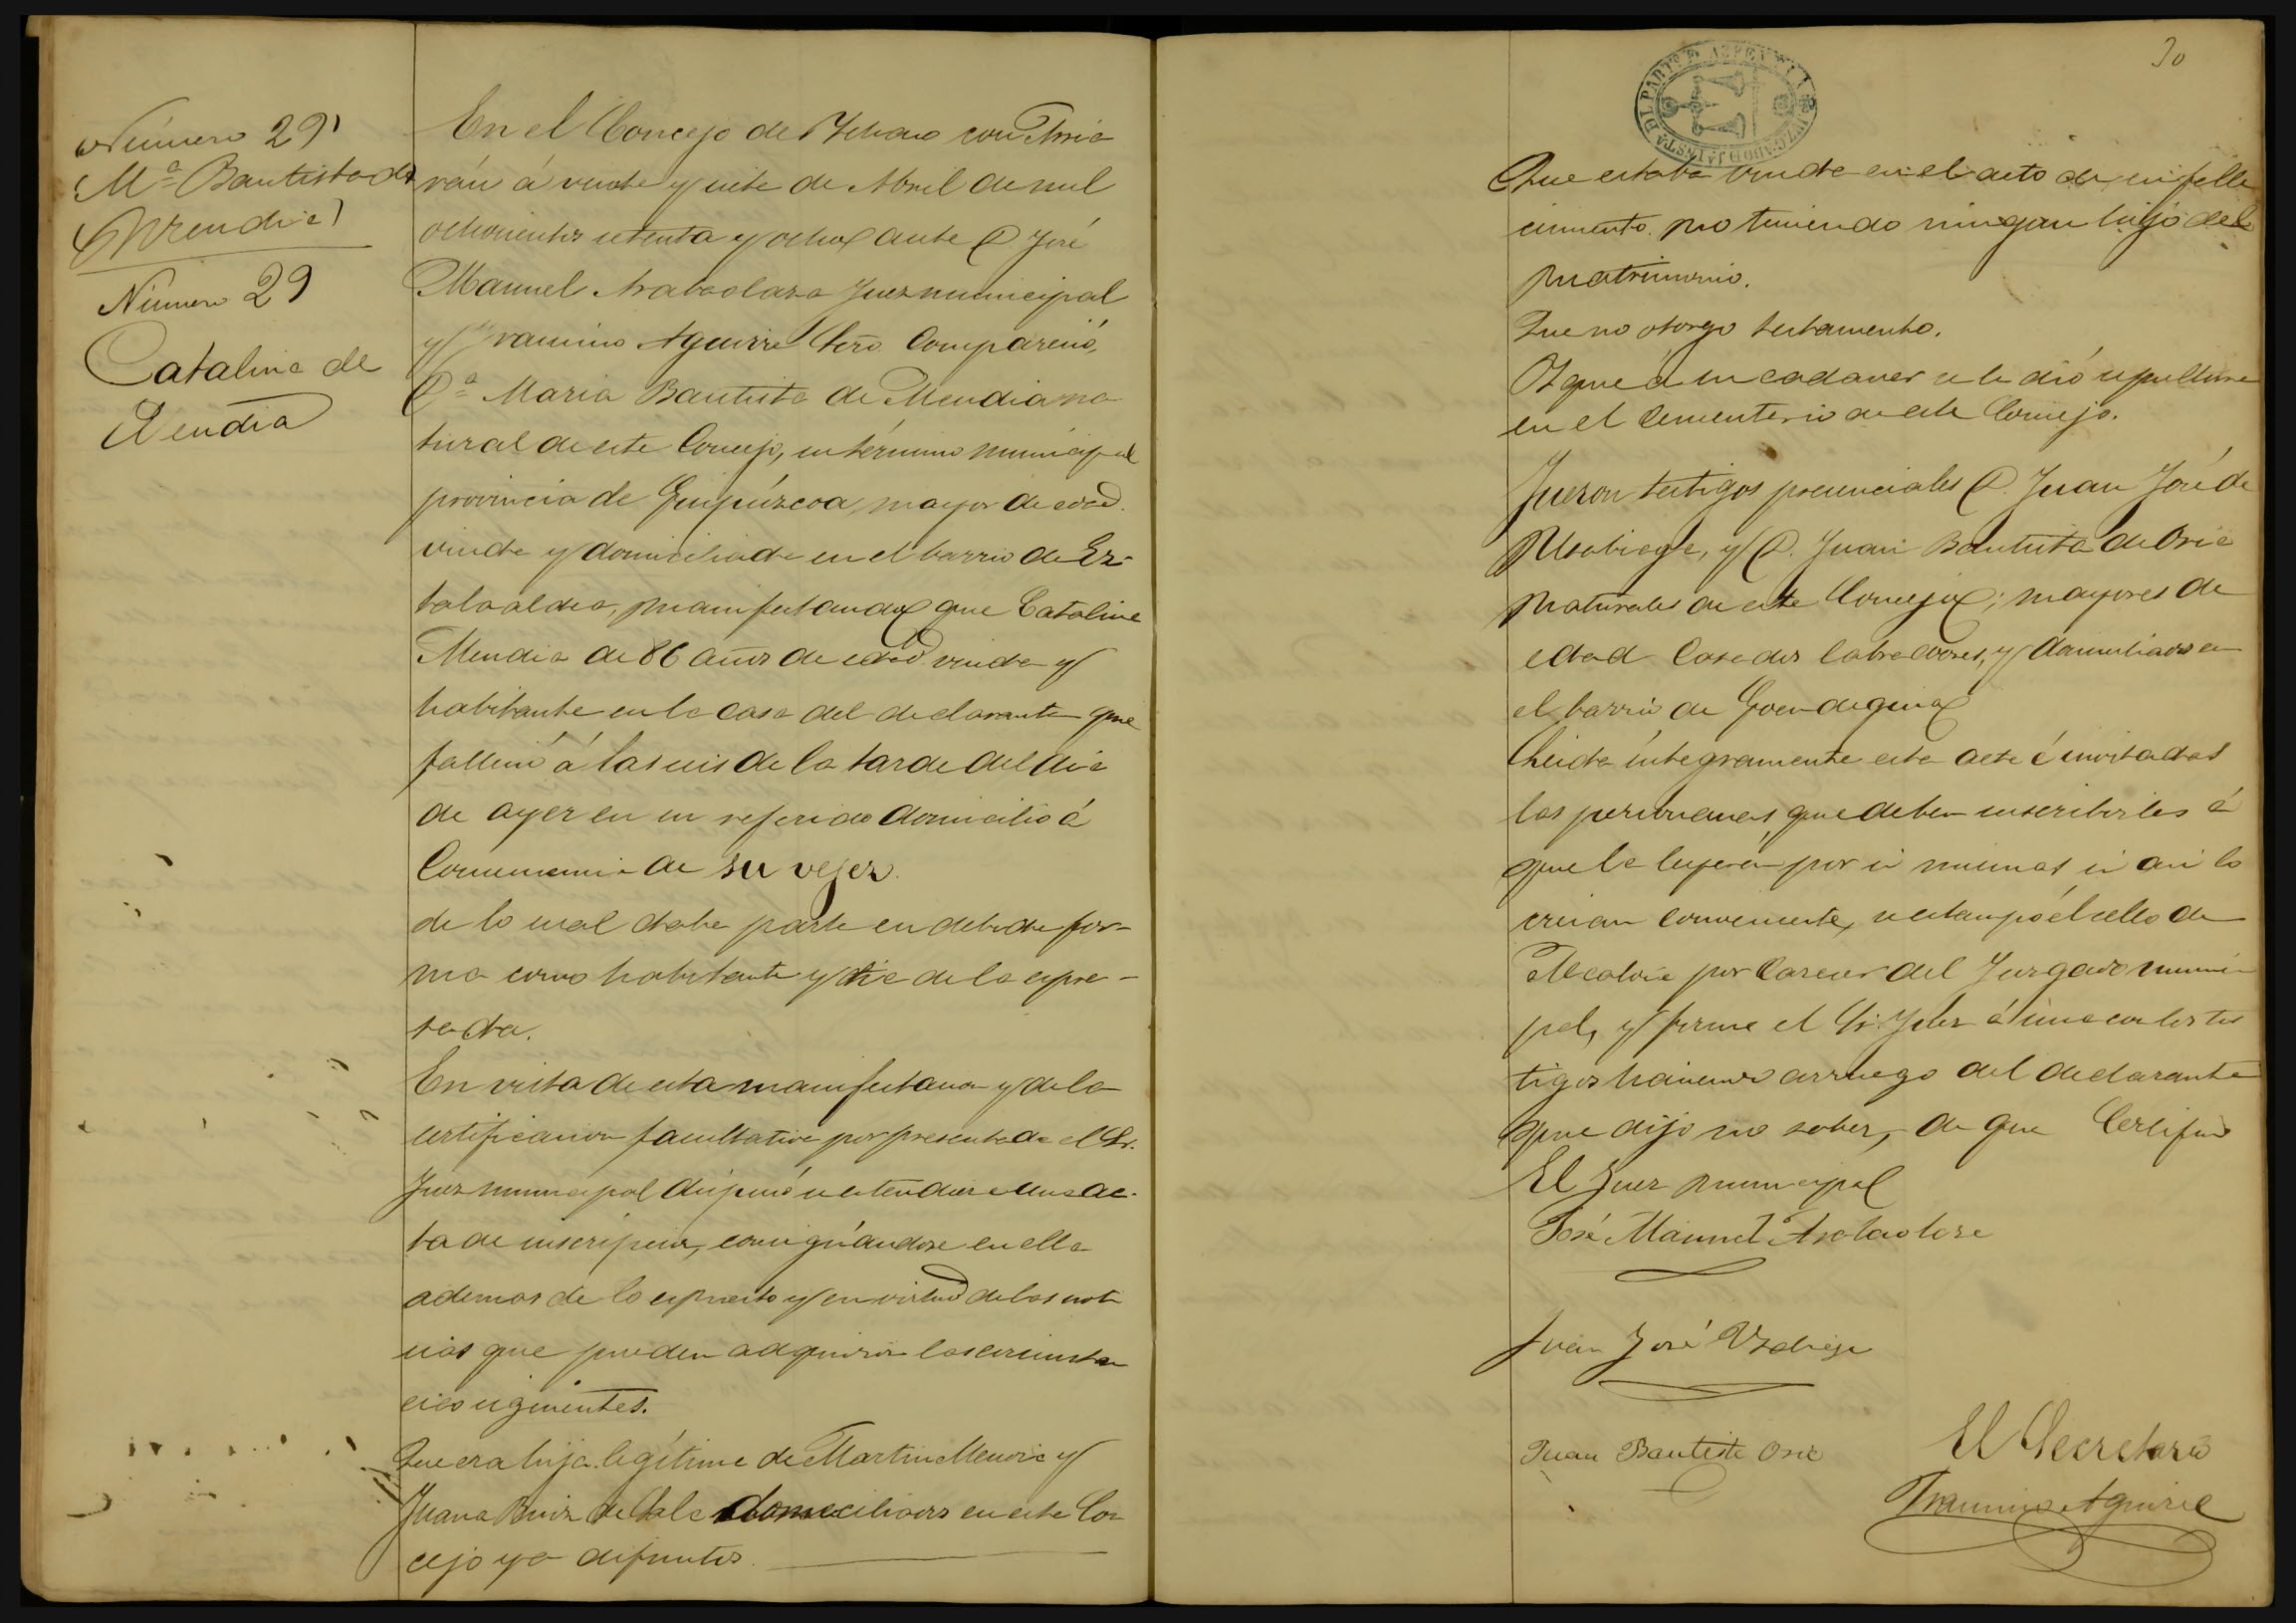 Número 29
Mª Bautista de
Número 29
Catalina de
Mendia
En el Concejo de
rán á veinte y siete de Abril de mil
ochocientos setenta y ocho ante D José
Manuel Juez municipal
y Aguirre Srio Compareció,
Dª Maria Bautista de Mendia na
tural de este Concejo, su término municipal
provincia de Guipúzcoa, mayor de edad.
viuda y domiciliada en el barrio de Ez-
manifestando que Catalina
Mendia de 86 años de edad viuda y
habitante en la casa del declarante que
falleció á las seis de la tarde del dia
de ayer en su referido domicilio á
Consecuencia de su vejez.
de lo cual daba parte en debida for-
ma como habitante y tia de la expre-
sada.
En vista de esta manifestacion y de la
certificacion facultativa por presentada el Sr.
Juez municipal dispuso se estendiera una ac-
ta de inscripcion, consignándose en ella
ademas de lo espuesto y en virtud de las noti
cias que pueden adquirir las circunstan
cias siguientes.
Que era hija legítima de Martin Mendia y
Juana Ruiz de domiciliados en este Con
cejo ya difuntos.
30
JUZGADO DE
DEL PARTº DE AZPEITIA
Que estaba viuda en el acto de su falle
cimiento no teniendo ningun hijo del
matrimonio.
Que no otorgo testamento.
Y que á su cadaver se le dió sepultura
en el Cementerio de este Concejo.
Fueron testigos presenciales D. Juan José de
y D. Juan Bautista de Oria
naturales de este Concejo; mayores de
edad Casados labradores, y domiciliados en
el barrio de
Leida íntegramente esta acta é invitadas
las personas que deben suscribirles á
que la leyeran por si mismas si asi lo
creian conveniente, se estampó el sello de
Alcaldia por Carecer del Juzgado munici
pal, y firma el Sr. Juez con los tes
tigos haciendo arruego del declarante
que dijo no saber, de que Certifico
El Juez municipal
José Manuel
Juan José
Juan Bautista Oria
El Secretario
Aguirre